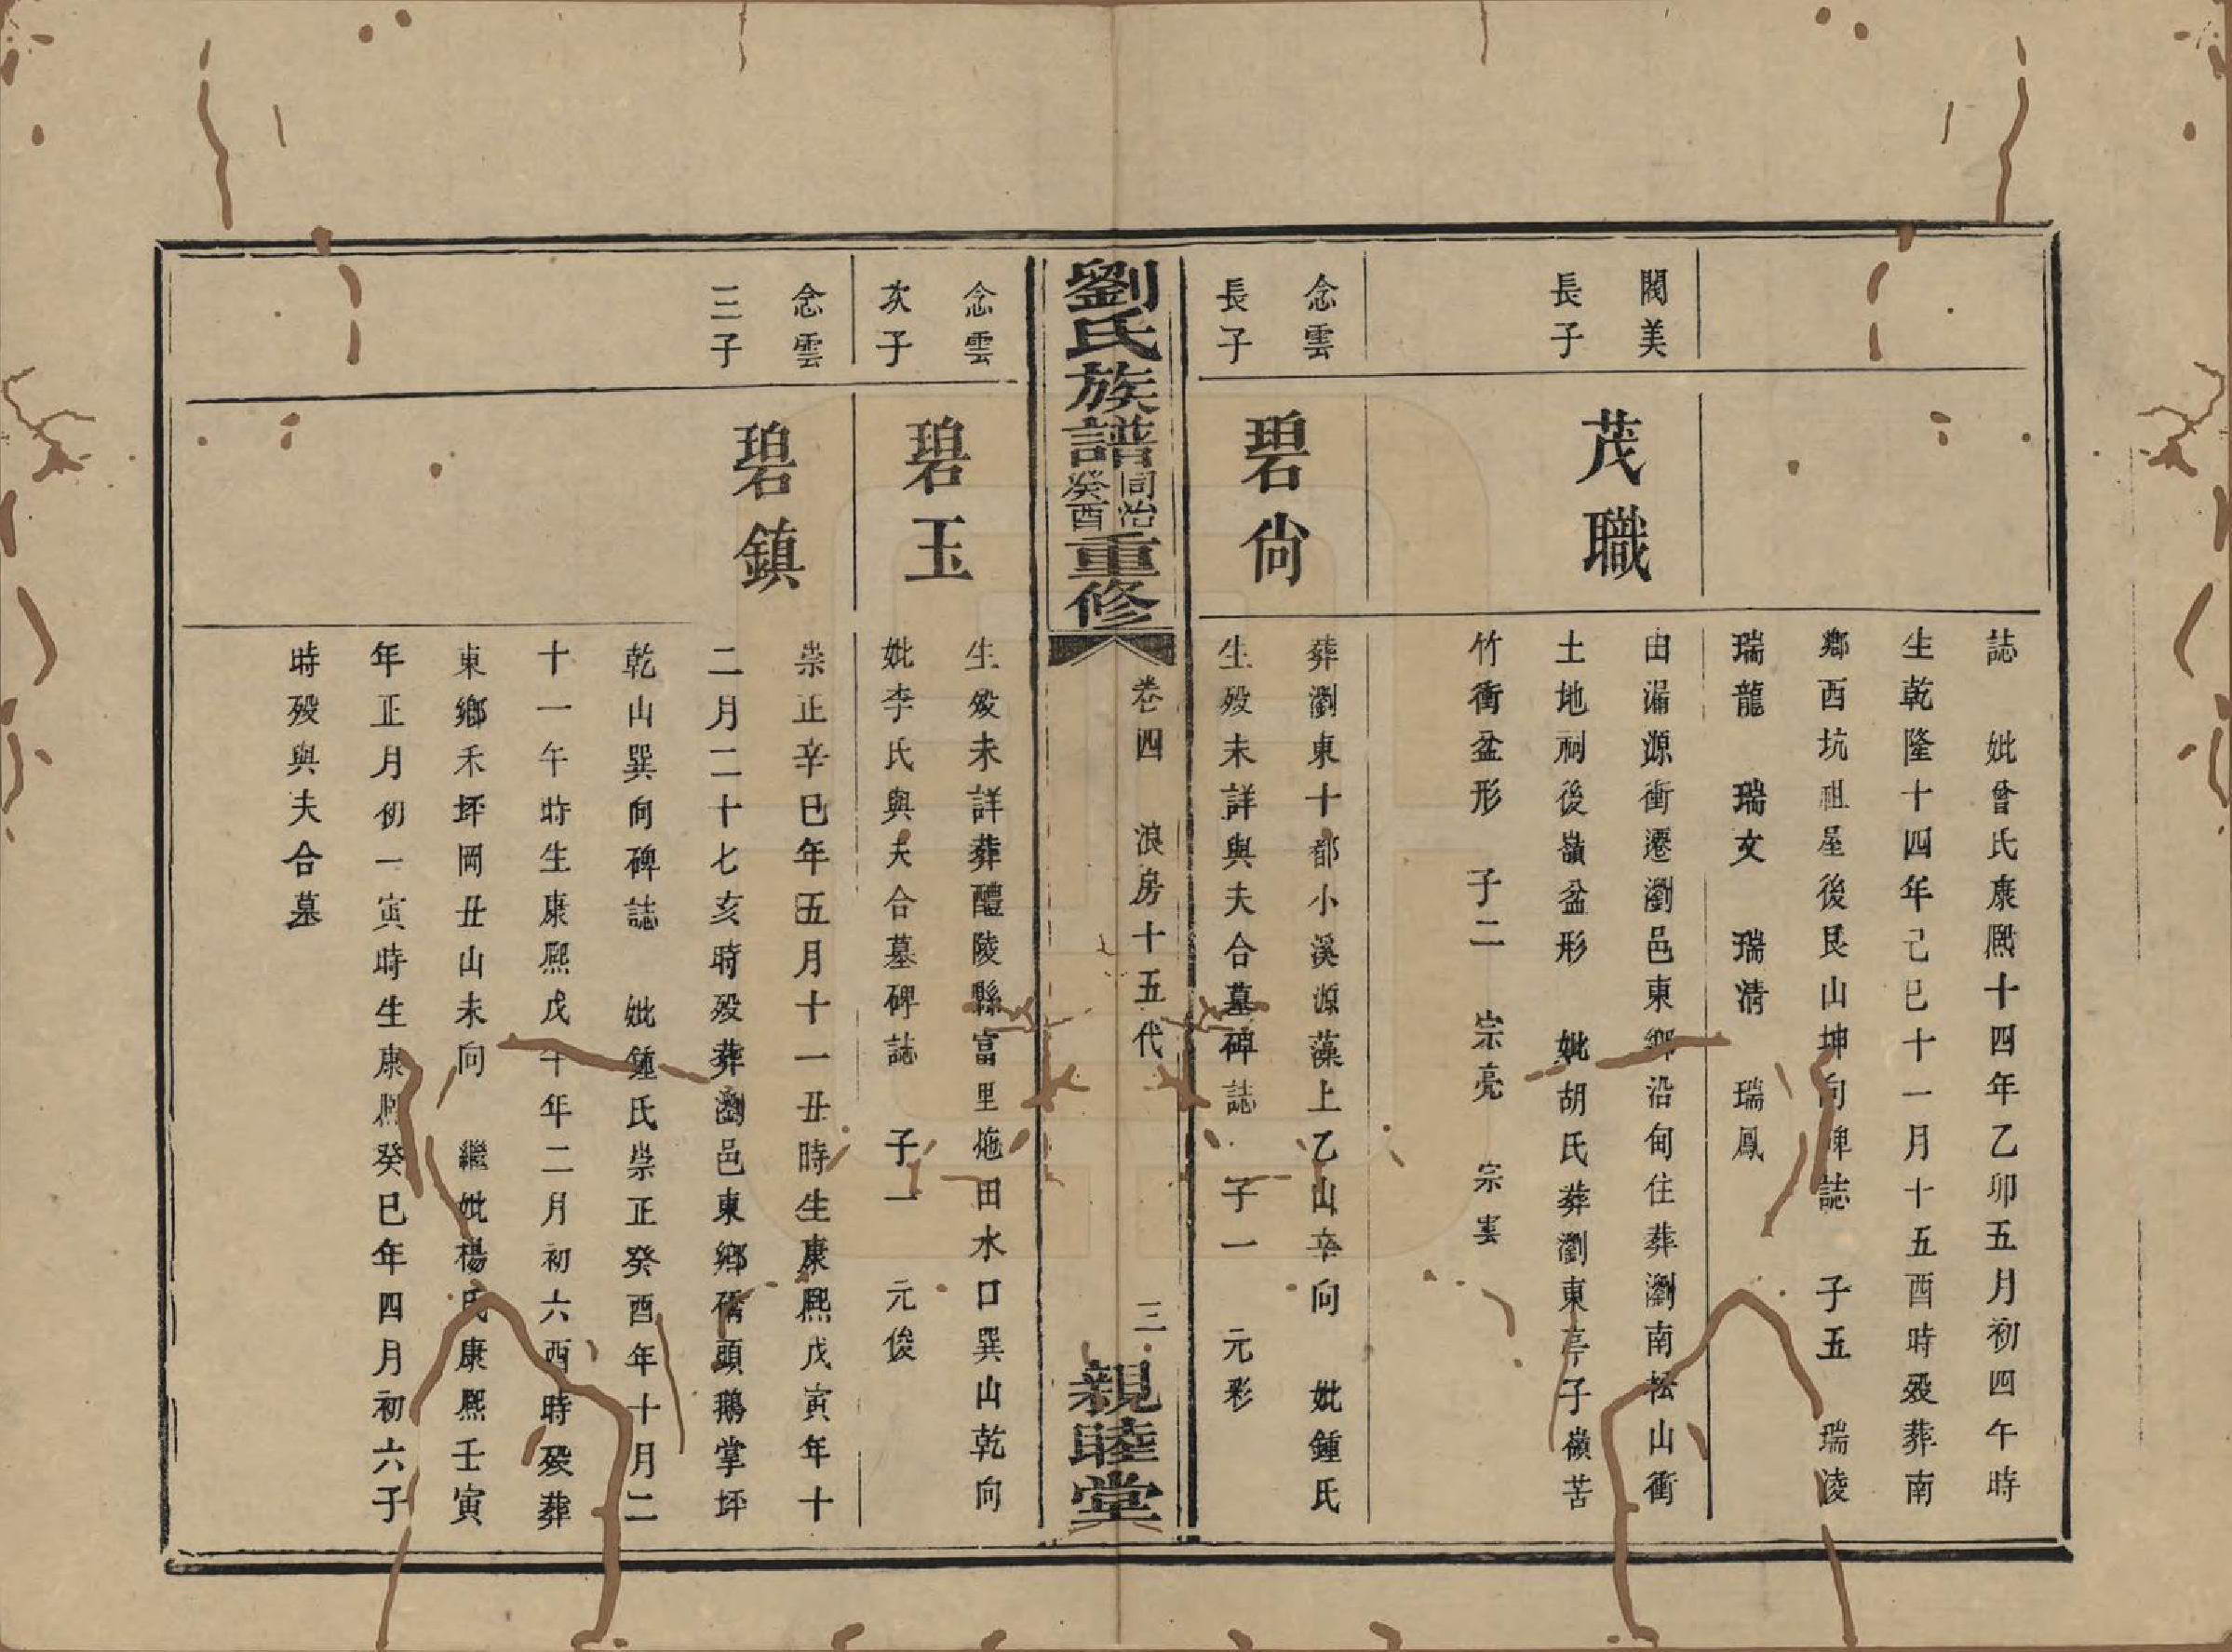 誌　妣曾氏康熙十四年乙卯五月初四午時
生乾隆十四年己巳十一月十五酉時歿葬南
鄉西坑祖屋後艮山坤向碑誌　子五　瑞淩
瑞龍　瑞文　瑞清　瑞鳳
閥美
長子
茂職
由漏源衝遷瀏邑東鄉沿甸住葬瀏南松山衝
土地祠後嶺盆形　妣胡氏葬瀏東亭子嶺苦
竹衝盆形　子二　宗亮　宗雲
念雲
長子
碧尙
葬瀏東十都小溪源藻上乙山辛向　妣鍾氏
生歿未詳與夫合墓碑誌　子一　元彩
劉氏族譜同治癸酉重修
卷四　浪房十五代　三
親睦堂
念雲
次子
碧玉
生歿未詳葬醴陵縣富里炧田水口巽山乾向
妣李氏與夫合墓碑誌　子一　元俊
念雲
三子
碧鎮
崇正辛巳年五月十一丑時生康熙戊寅年十
二月二十七亥時歿葬瀏邑東鄉礄頭鵝掌坪
乾山巽向碑誌　妣鍾氏崇正癸酉年十月二
十一午時生康熙戊午年二月初六酉時歿葬
東鄉禾坪岡丑山未向　繼妣楊氏康熙壬寅
年正月初一寅時生康熙癸巳年四月初六子
時歿與夫合墓